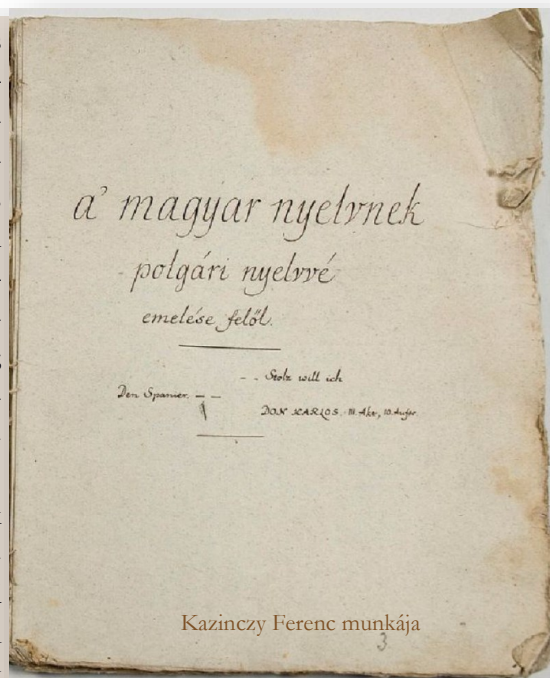 a' magyar nyelvnek
polgári nyelvvé
emelése felől.
- - Stolz will ich
Den Spanier. – –
DON KARLOS. III. Akt, 10. Auftr.
Kazinczy Ferenc munkája
3